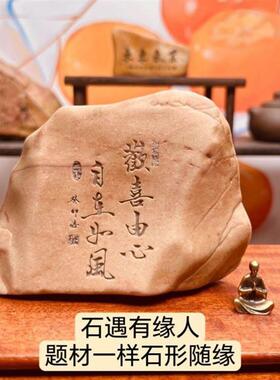 歡喜由心
自在如風
石遇有缘人
题材一样石形随缘